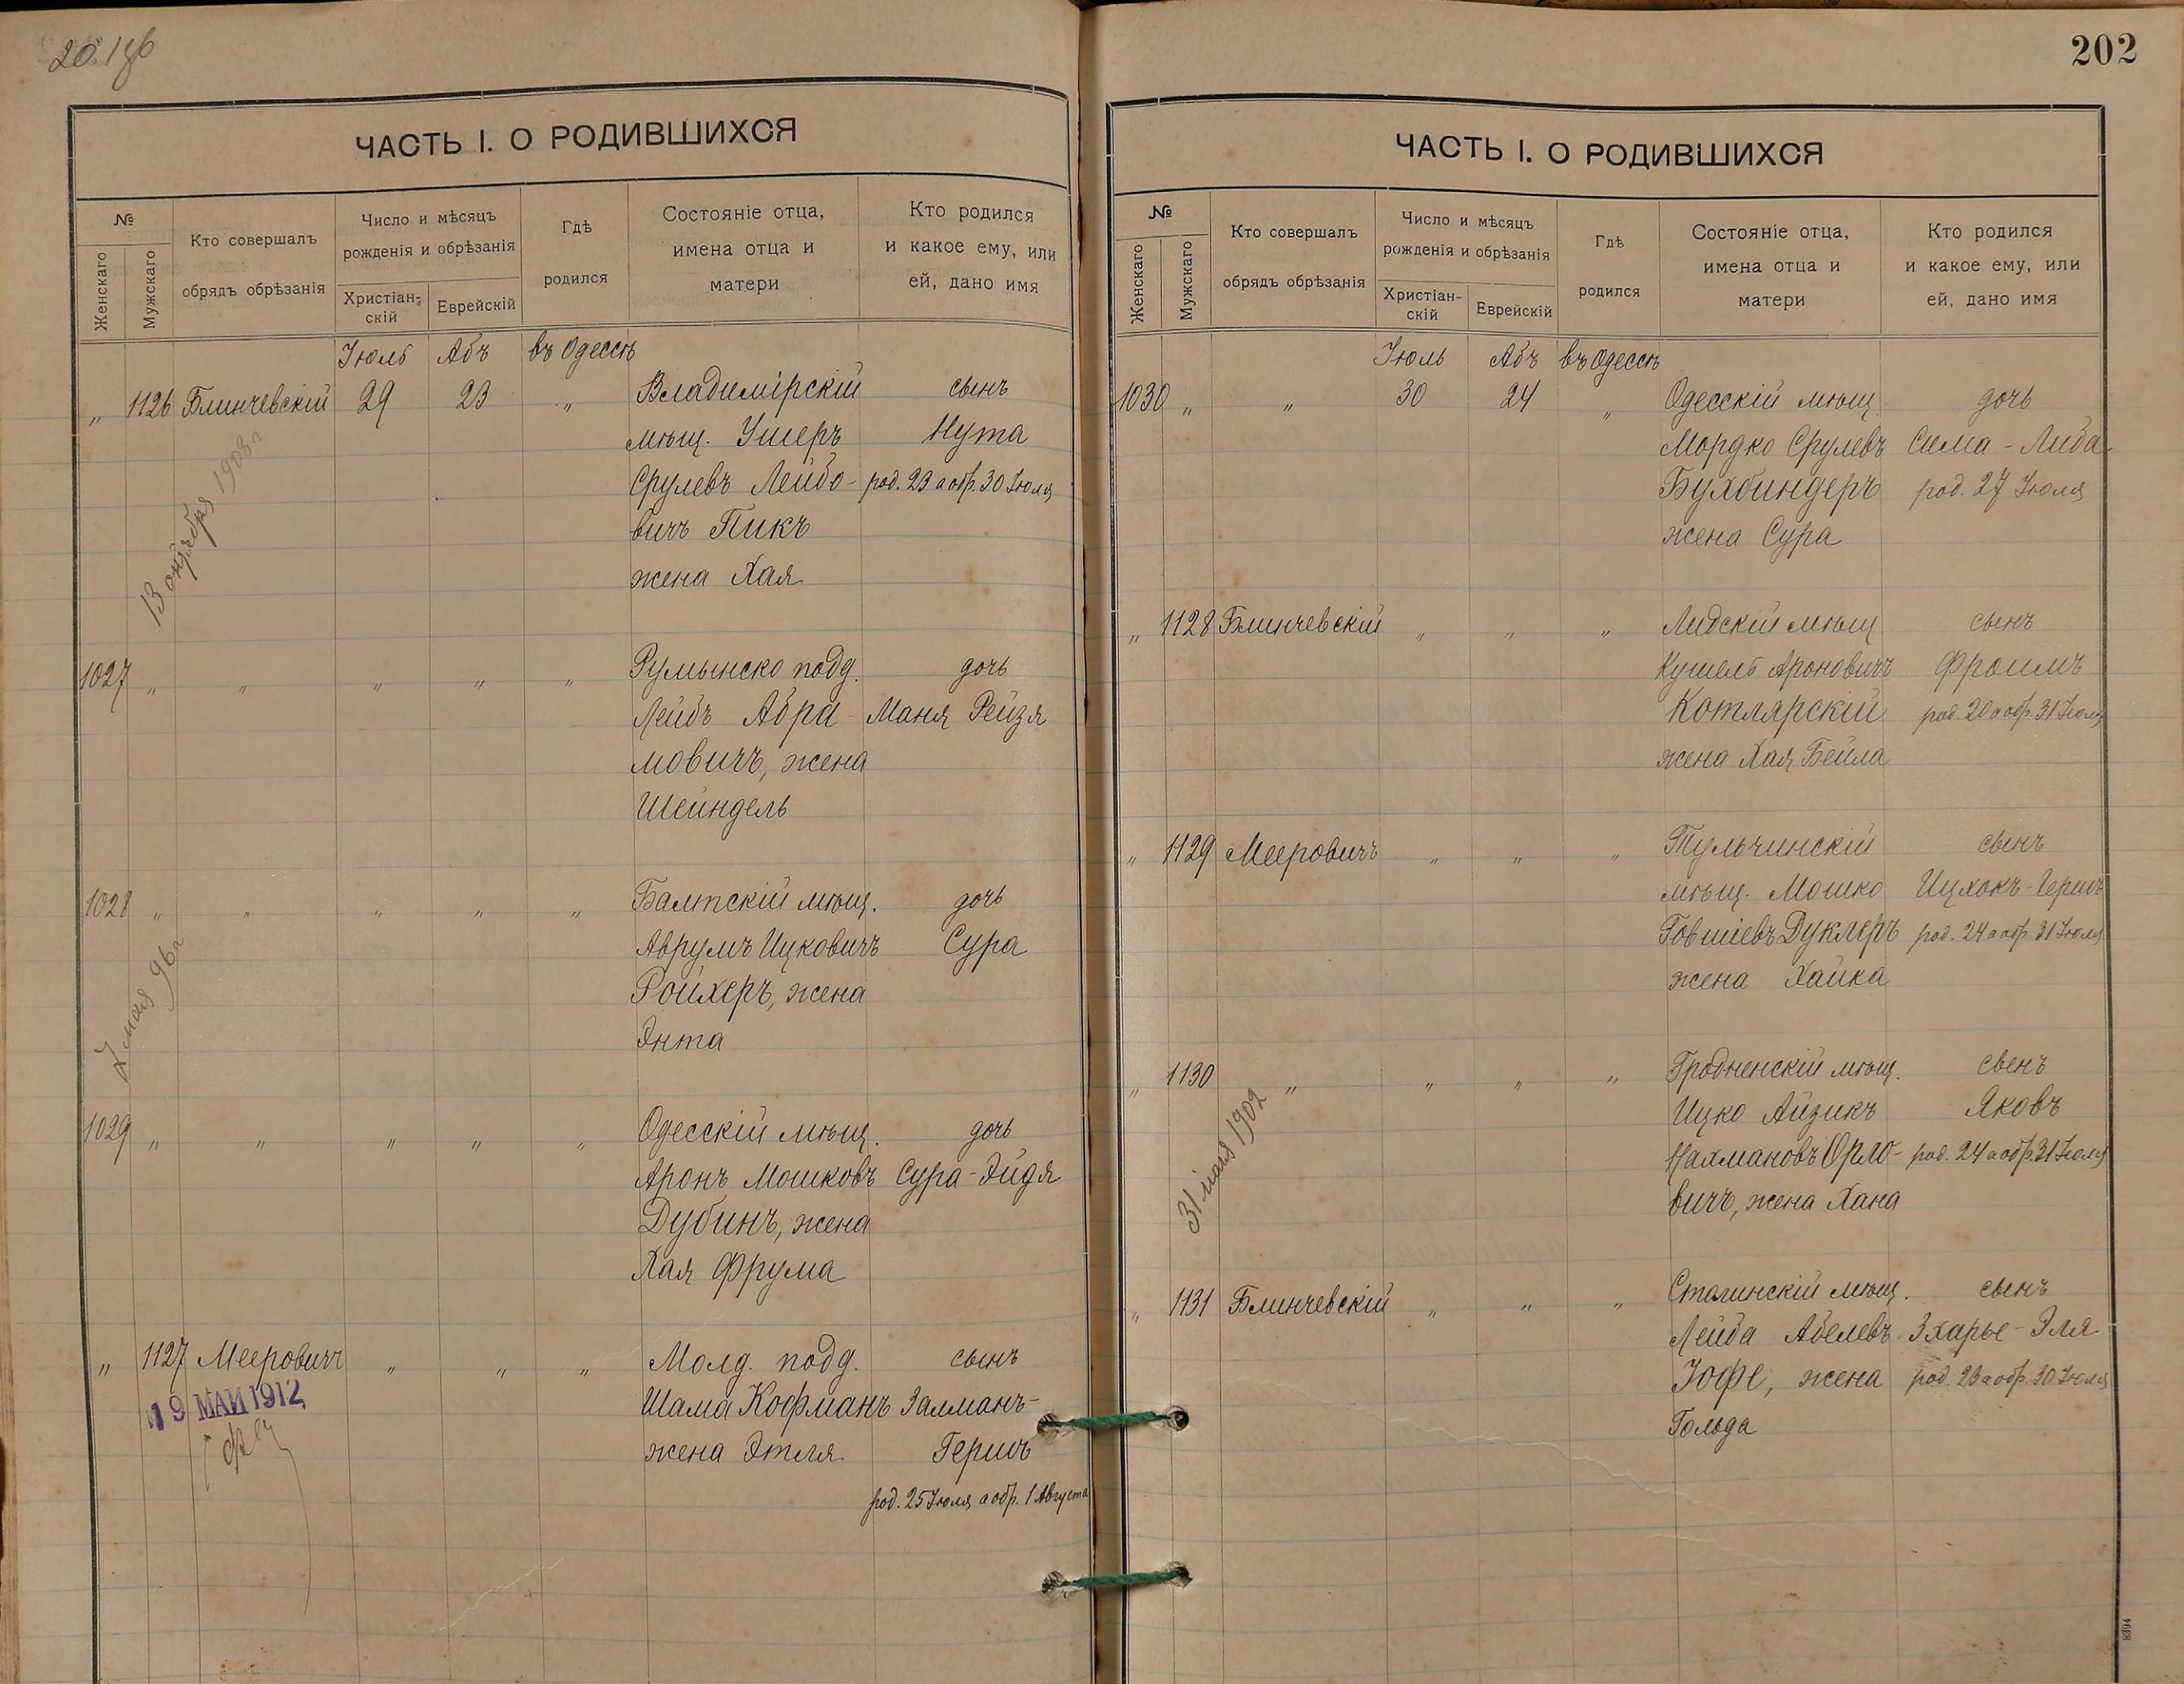 202
ЧАСТЬ I. О РОДИВШИХСЯ
№
Женскаго
Мужскаго
Кто совершалъ
обрядъ обрѣзанія
Число и мѣсяцъ
рожденія и обрѣзанія
Христіан-
скій
Еврейскій
Гдѣ
родился
Состояніе отца,
имена отца и
матери
Кто родился
и какое ему, или
ей, дано имя
Іюль Абъ въ Одессѣ
„ 1126 Блинчевскій 29 23 „ Владимірскій сынъ
мѣщ. Ушеръ Нута
Срулевъ Лейбо- род. 23 а обр. 30 Іюля
вичъ Пикъ
жена Хая
1908 г
1027 „ „ „ „ „ Румынско подд. дочь
Лейбъ Абра- Маня Рейзя
мовичъ, жена
Шейндель
1028 „ „ „ „ „ Балтскій мѣщ. дочь
Аврумъ Ицковичъ Сура
Ройхеръ, жена
Энта
7 мая 96 г
1029 „ „ „ „ „ Одесскій мѣщ. дочь
Аронъ Мошковъ Сура-Эйдя
Дубинъ, жена
Хая Фрума
„ 1127 Мееровичъ „ „ „ Молд. подд. сынъ
19 МАИ 1912
Шама Кофманъ Залманъ-
жена Этля Гершъ
род. 25 Іюля а обр. 1 Августа
ЧАСТЬ I. О РОДИВШИХСЯ
№
Женскаго
Мужскаго
Кто совершалъ
обрядъ обрѣзанія
Число и мѣсяцъ
рожденія и обрѣзанія
Христіан-
скій
Еврейскій
Гдѣ
родился
Состояніе отца,
имена отца и
матери
Кто родился
и какое ему, или
ей, дано имя
Іюль Абъ въ Одессѣ
1030 „ „ 30 24 „ Одесскій мѣщ. дочь
Мордко Срулевъ Сима-Либа
Бухбиндеръ род. 27 Іюля
жена Сура
„ 1128 Блинчевскій „ „ „ Лидскій мѣщ сынъ
Кушель Ароновичъ Фроимъ
Котлярскій род. 20 а обр. 31 Іюля
жена Хая Бейла
„ 1129 Мееровичъ „ „ „ Тульчинскій сынъ
мѣщ. Мошко Ицхокъ-Гершъ
Говшіевъ Дуклеръ род. 24 а обр 31 Іюля
жена Хайка
„ 1130 „ „ „ „ Гродненскій мѣщ. сынъ
Ицко Айзикъ Яковъ
Нахмановъ Орло- род. 24 а обр. 31 Іюля
вичъ, жена Хана
1902
„ 1131 Блинчевскій „ „ „ Столинскій мѣщ. сынъ
Лейба Абелевъ Зхарье-Эля
Іофе, жена род. 23 а обр. 30 Іюля
Гольда